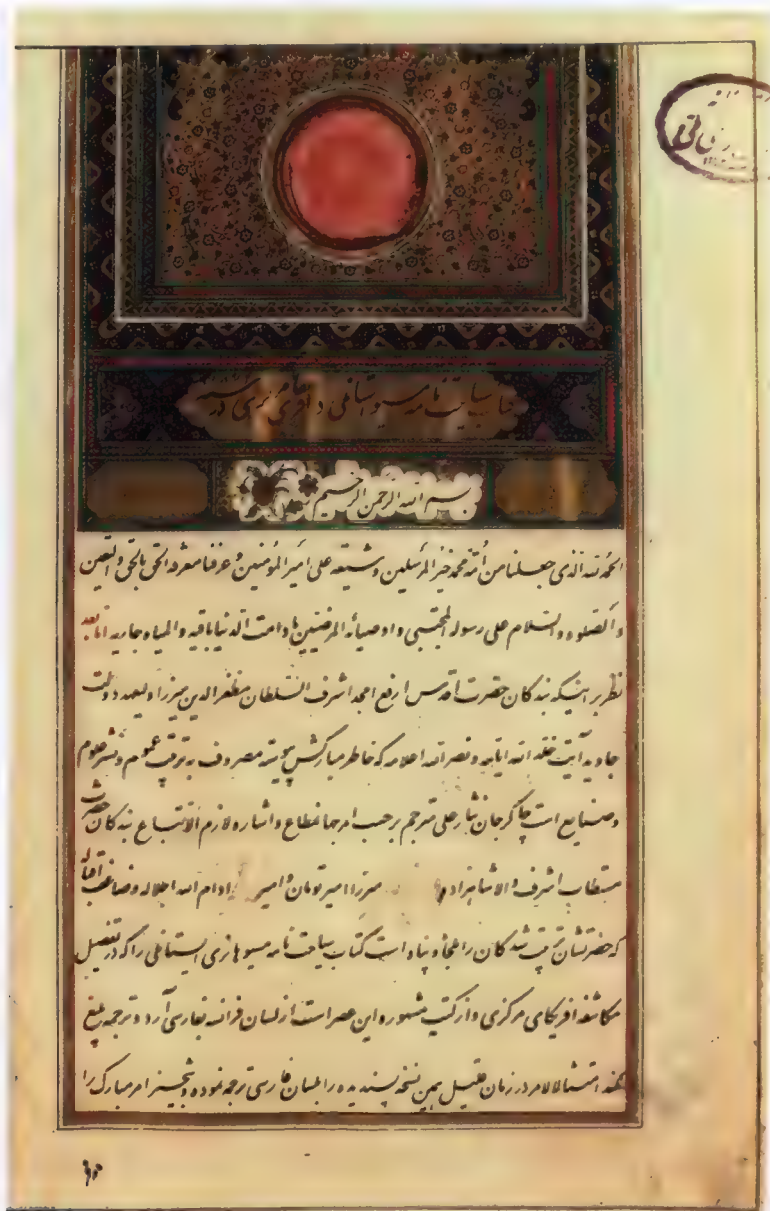 کتاب سیاحت نامه مسیو استانلی در افریقای مرکزی
بسم الله الرحمن الرحیم
الحمد لله الذی جعلنا من أمة محمد خیر المرسلین و شیعة علی أمیر المؤمنین و عرفنا معرفة الحق بالحق و الیقین
و الصلوة و السلام علی رسوله المجتبی و اوصیائه المرضیین ما دامت الدنیا باقیه و المیاه جاریه اما بعد
نظر بر اینکه بندکان حضرت اقدس ارفع امجد اشرف السلطان مظفرالدین میرزا ولیعهد دولت
جاوید آیت خلد الله ایامه و نصر الله اعلامه که خاطر مبارکش پیوسته مصروف به ترقی عموم و نشر علوم
و صنایع است چاکر جان نثار علی مترجم بر حسب امر جهانمطاع و اشاره لازم الاتباع بندکان حضرت
مستطاب اشرف والا شاهزاده میرزا امیر تومان و امیر ادام الله اجلاله و ضاعف اقباله
که حضرتشان تربیت شدکان را ملجأ و پناه است کتاب سیاحت نامه مسیو هانری استانلی را که در تفصیل
مکاشفه افریکای مرکزی و از کتب مشهوره این عصر است از لسان فرانسه بفارسی آرد و ترجمه بلیغ
کند امتثالا لامر در زمان قلیل همین نسخه پسندیده را بلسان فارسی ترجمه نموده و نتیجه امر مبارک را